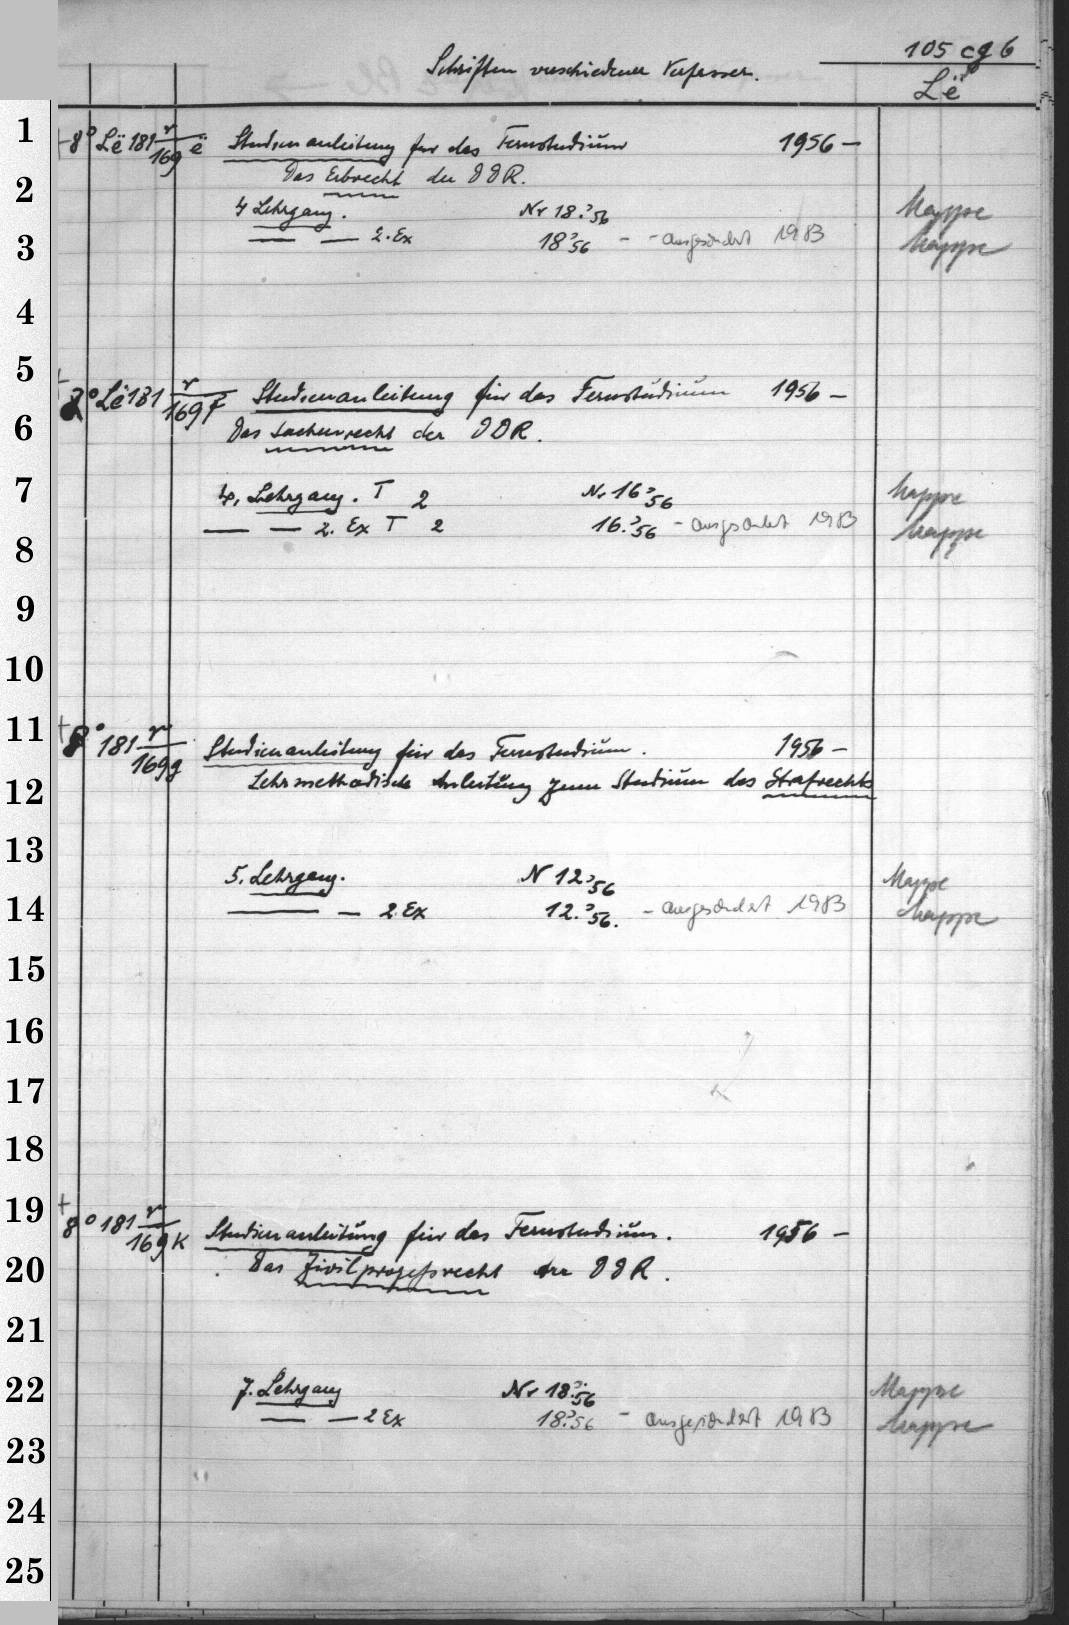 Schriften verschiedener Verfasser.
105 cg 6
Lë
1
8° Lë 181 r/169 ë Studienanleitung für das Fernstudium 1956 –
Das Erbrecht der DDR.
2
4 Lehrgang. Nr 18.²56 Mappe
— — 2. Ex 18²56 – - ausgesondert 1983 Mappe
3
4
5
8° Lë 181 r/169 f Studienanleitung für das Fernstudium 1956 –
6
Das Sachenrecht der DDR.
7
4. Lehrgang. T 2 Nr 16²56 Mappe
— — 2. Ex T 2 16.²56 – ausgesondert 1983 Mappe
8
9
10
11
8° 181 r/169 g Studienanleitung für das Fernstudium. 1956 –
12
Lehrmethodische Anleitung zum Studium des Strafrechts
13
5. Lehrgang. N 12²56 Mappe
14
— — 2. Ex 12.²56. – ausgesondert 1983 Mappe
15
16
17
18
19
8° 181 r/169 k Studienanleitung für das Fernstudium. 1956 –
20
Das Zivilprozeßrecht der DDR.
21
22
7. Lehrgang Nr 18²56 Mappe
— — 2 Ex 18²56 – ausgesondert 1983 Mappe
23
24
25